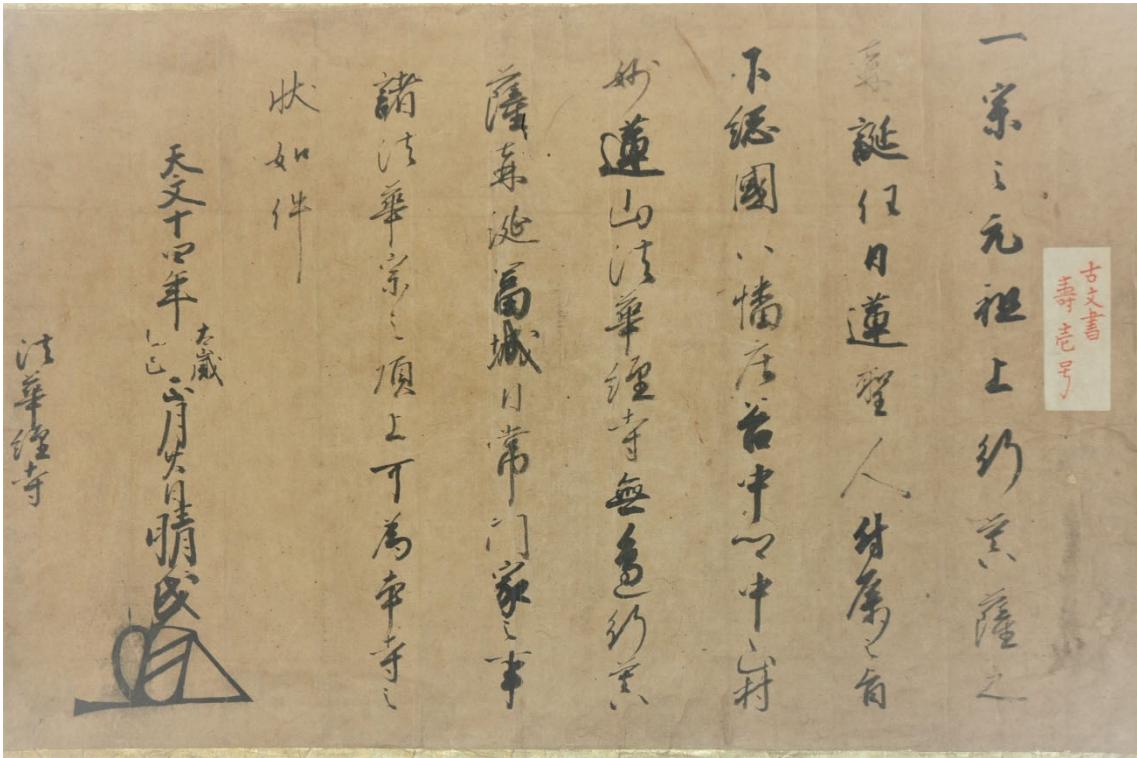 古文書
壽壱号
一宗之元祖上行菩薩之
再誕任日蓮聖人付属之旨
下総國八幡庄谷中郷中山村
妙蓮山法華経寺無邊行菩
薩再誕富城日常門家之事
諸法華宗之頂上可為本寺之
状如件
天文十四年太歳乙巳正月日晴氏
法華経寺